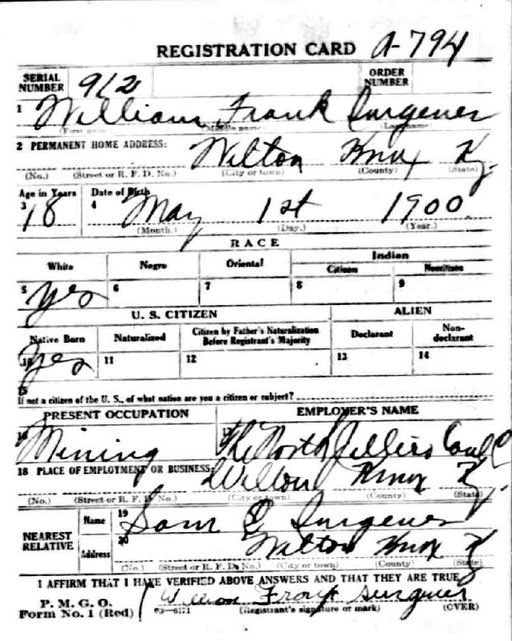 REGISTRATION CARD A-794
SERIAL NUMBER 912 ORDER NUMBER
1 William Frank Surgener
(First name) (Middle name) (Last name)
2 PERMANENT HOME ADDRESS: Wilton Knox Ky.
(No.) (Street or R. F. D. No.) (City or town) (County) (State)
Age in Years Date of Birth
3 18 4 May 1st 1900
(Month.) (Day.) (Year.)
RACE
White Negro Oriental Indian
Citizen Noncitizen
5 Yes 6 7 8 9
U. S. CITIZEN ALIEN
Native Born Naturalized Citizen by Father's Naturalization Before Registrant's Majority Declarant Non-declarant
10 Yes 11 12 13 14
15
If not a citizen of the U. S., of what nation are you a citizen or subject?
PRESENT OCCUPATION EMPLOYER'S NAME
16 Mining 17 The North Jellico Coal Co
18 PLACE OF EMPLOYMENT OR BUSINESS: Wilton Knox Ky.
(No.) (Street or R. F. D. No.) (City or town) (County) (State)
NEAREST RELATIVE
Name 19 Sam Surgener
Address 20 Wilton Knox Ky
(No.) (Street or R. F. D. No.) (City or town) (County) (State)
I AFFIRM THAT I HAVE VERIFIED ABOVE ANSWERS AND THAT THEY ARE TRUE
P. M. G. O.
Form No. 1 (Red) 03-6171 William Frank Surgener
(Registrant's signature or mark) (OVER)